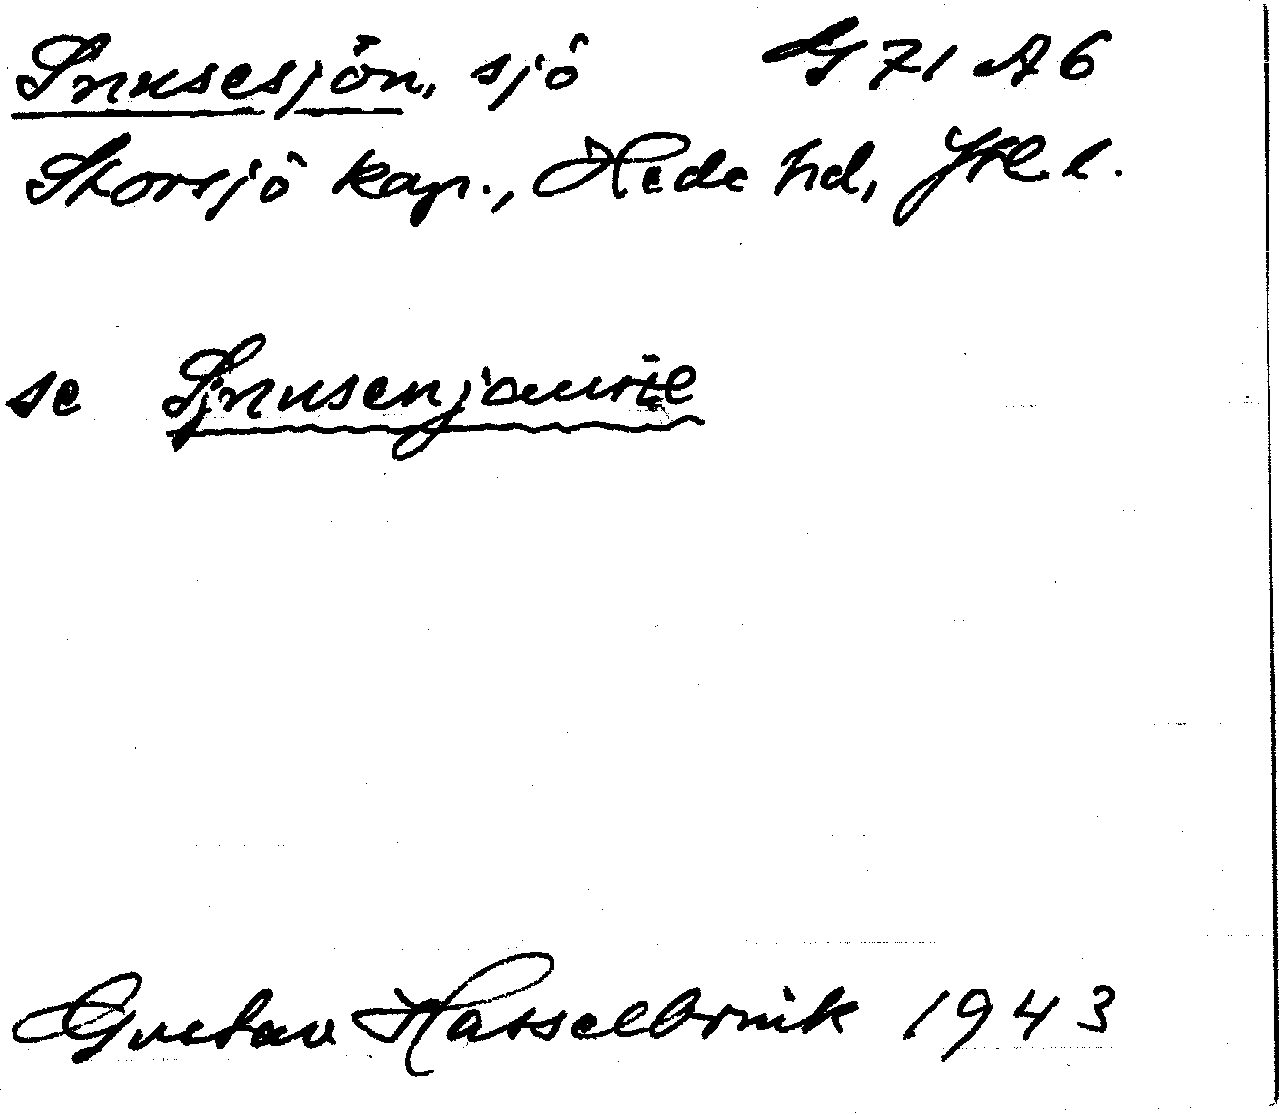 Snusesjön, sjö G 71 A 6
Storsjö kap., Hede hd, Jtl l.
se Snjusenjaurie
Gustav Hasselbrink 1943